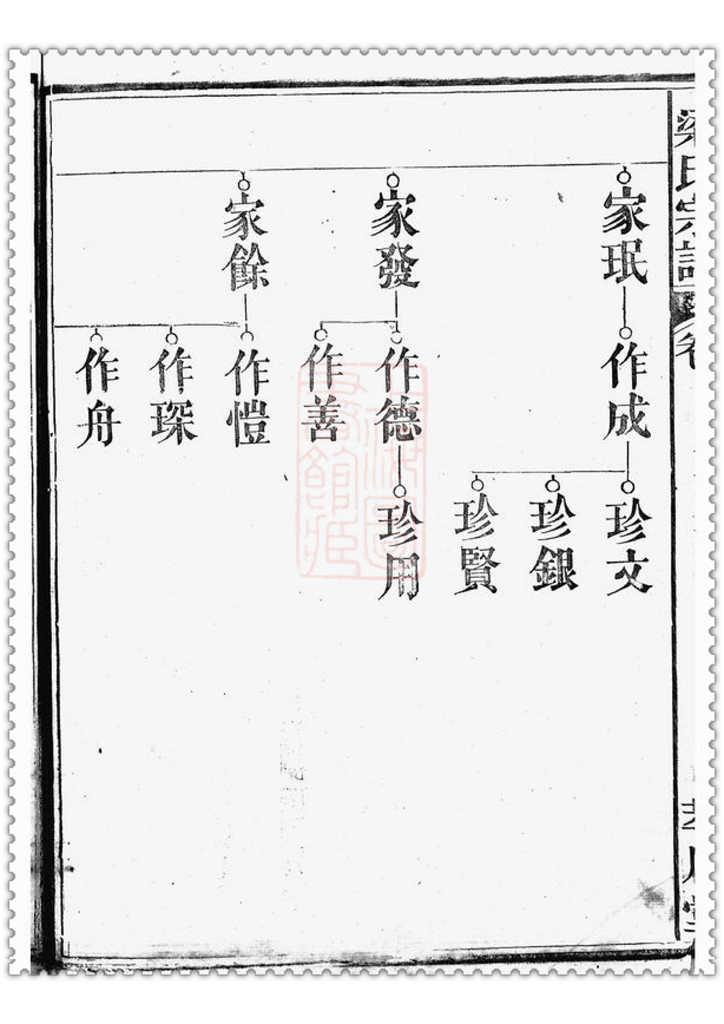 梁氏宗譜
卷
家珉
家發
家餘
作成
作德
作善
作愷
作琛
作舟
珍文
珍銀
珍賢
珍用